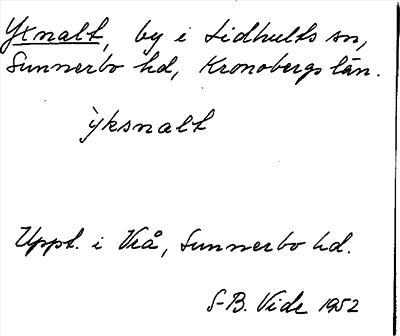 Yxnalt, by i Lidhults sn,
Sunnerbo hd, Kronobergs län.
`yksnalt
Uppt. i Vrå, Sunnerbo hd.
S-B. Vide 1952